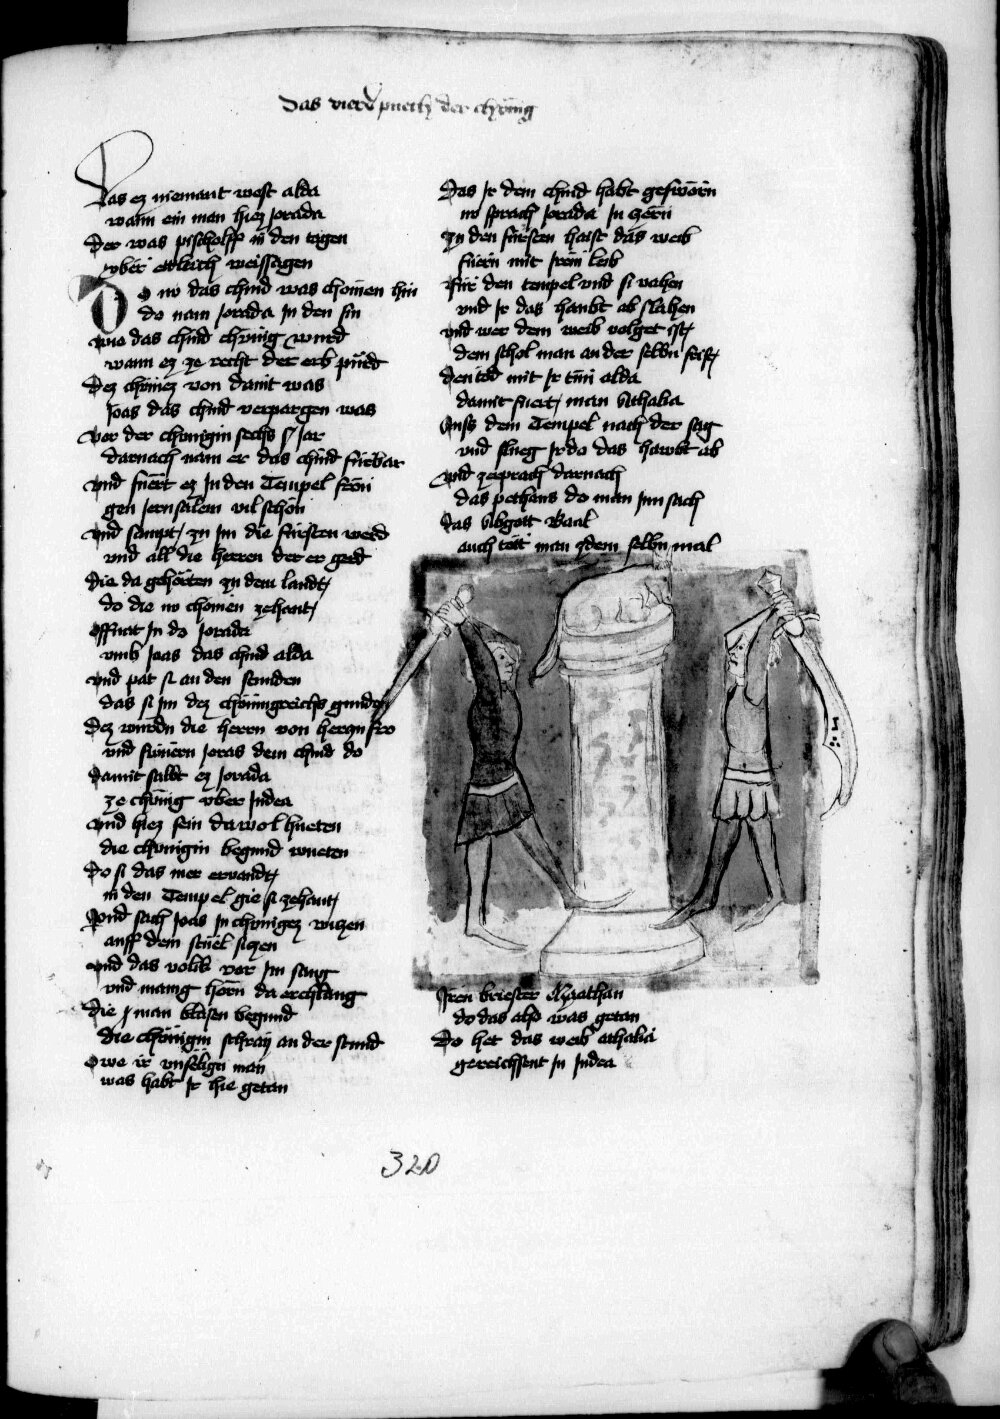 Das vierd puech der chünig
Das ez niemant west alda
wann ein man hiez Jorada
Der was pischolff in den tagen
vber ettleich weissagen
Do no das chind was chomen hin
do nam Jorada in den sin
wie das chind chünig wurd
wann ez ze recht der erb pürd
Dez chünez von Dauit was
Joas das chind verpargen was
Vor der chunigin sechs Jar
darnach nam er das chind fürbar
Vnd fuert ez in den Tempel fron
gen Jerusalem vil schon
Vnd sampt zu im die fürsten werd
vnd all die herren der er gerd
Die da gehörten zu dem landt
do die no chomen zehant
Offnat in do Jorada
vmb Joas das chind alda
Vnd pat si an den stunden
das si im dez chünigreichs gunden
Dez wurdn die herrn von herczn fro
vnd swuern Joras dem chind do
Damit salbt ez Jorada
ze chünig vber Judea
Vnd hiez sein da wol hueten
die chunigin begund wueten
Do si das mer ervandt
in den Tempel gie si zehant
Vnd sach Joas in chünigez wiczen
auff dem stuel siczen
Vnd das volk vor im sang
vnd manig horn da erchlang
Die man blasen begund
die chünigin schray an der stund
Owe ir vnselign man
was habt ir hie getan
Das ir dem chind habt gesworn
no sprach Jorada in zorn
Zu den fürsten haist das weib
fuern mit irem leib
Für den tempel vnd si vahen
vnd ir das haubt ab slahen
Vnd wer dem weib volget ist
dem schol man an der selbn frist
Den tod mit ir tun alda
damit fuert man Athalia
Auss dem Tempel nach der sag
vnd slueg ir do das hawbt ab
Vnd zeprach darnach
das pethaus do man inn sach
Das Abgott Baal
auch tött man zdem selbn mal
Iren briester Maathan
do das also was getan
Do het das weib athalia
gereichsent in Judea
320